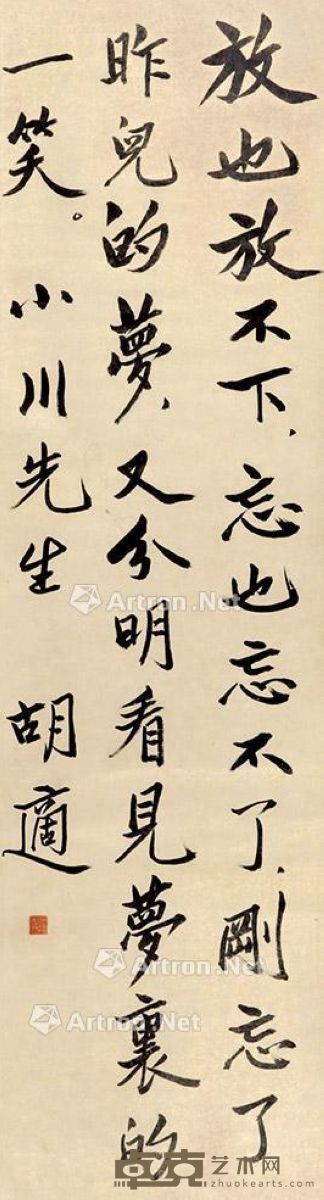 放也放不下、忘也忘不了、剛忘了
昨兒的夢、又分明看見夢裏的
一笑。 小川先生 胡適
Artron.Net
Artron.Net
Artron.Net
Artron.Net
卓克艺术网
zhuokearts.com